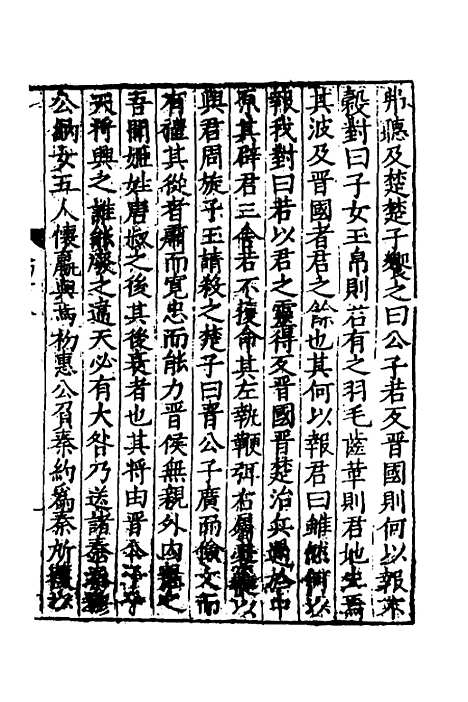 弗聽及楚楚子饗之曰公子若反晉國則何以報不
穀對曰子女玉帛則若有之羽毛齒革則君地生焉
其波及晉國者君之餘也其何以報君曰雖然何以
報我對曰若以君之靈得反晉國晉楚治兵遇於中
原其辟君三舍若不獲命其左執鞭弭右屬櫜鞬以
與君周旋子玉請殺之楚子曰晉公子廣而儉文而
有禮其從者肅而寬忠而能力晉侯無親外內惡之
吾聞姬姓唐叔之後其後衰者也其將由晉公子乎
天將興之誰能廢之違天必有大咎乃送諸秦秦穆
公納女五人懷嬴與焉初惠公背秦約為秦所獲以